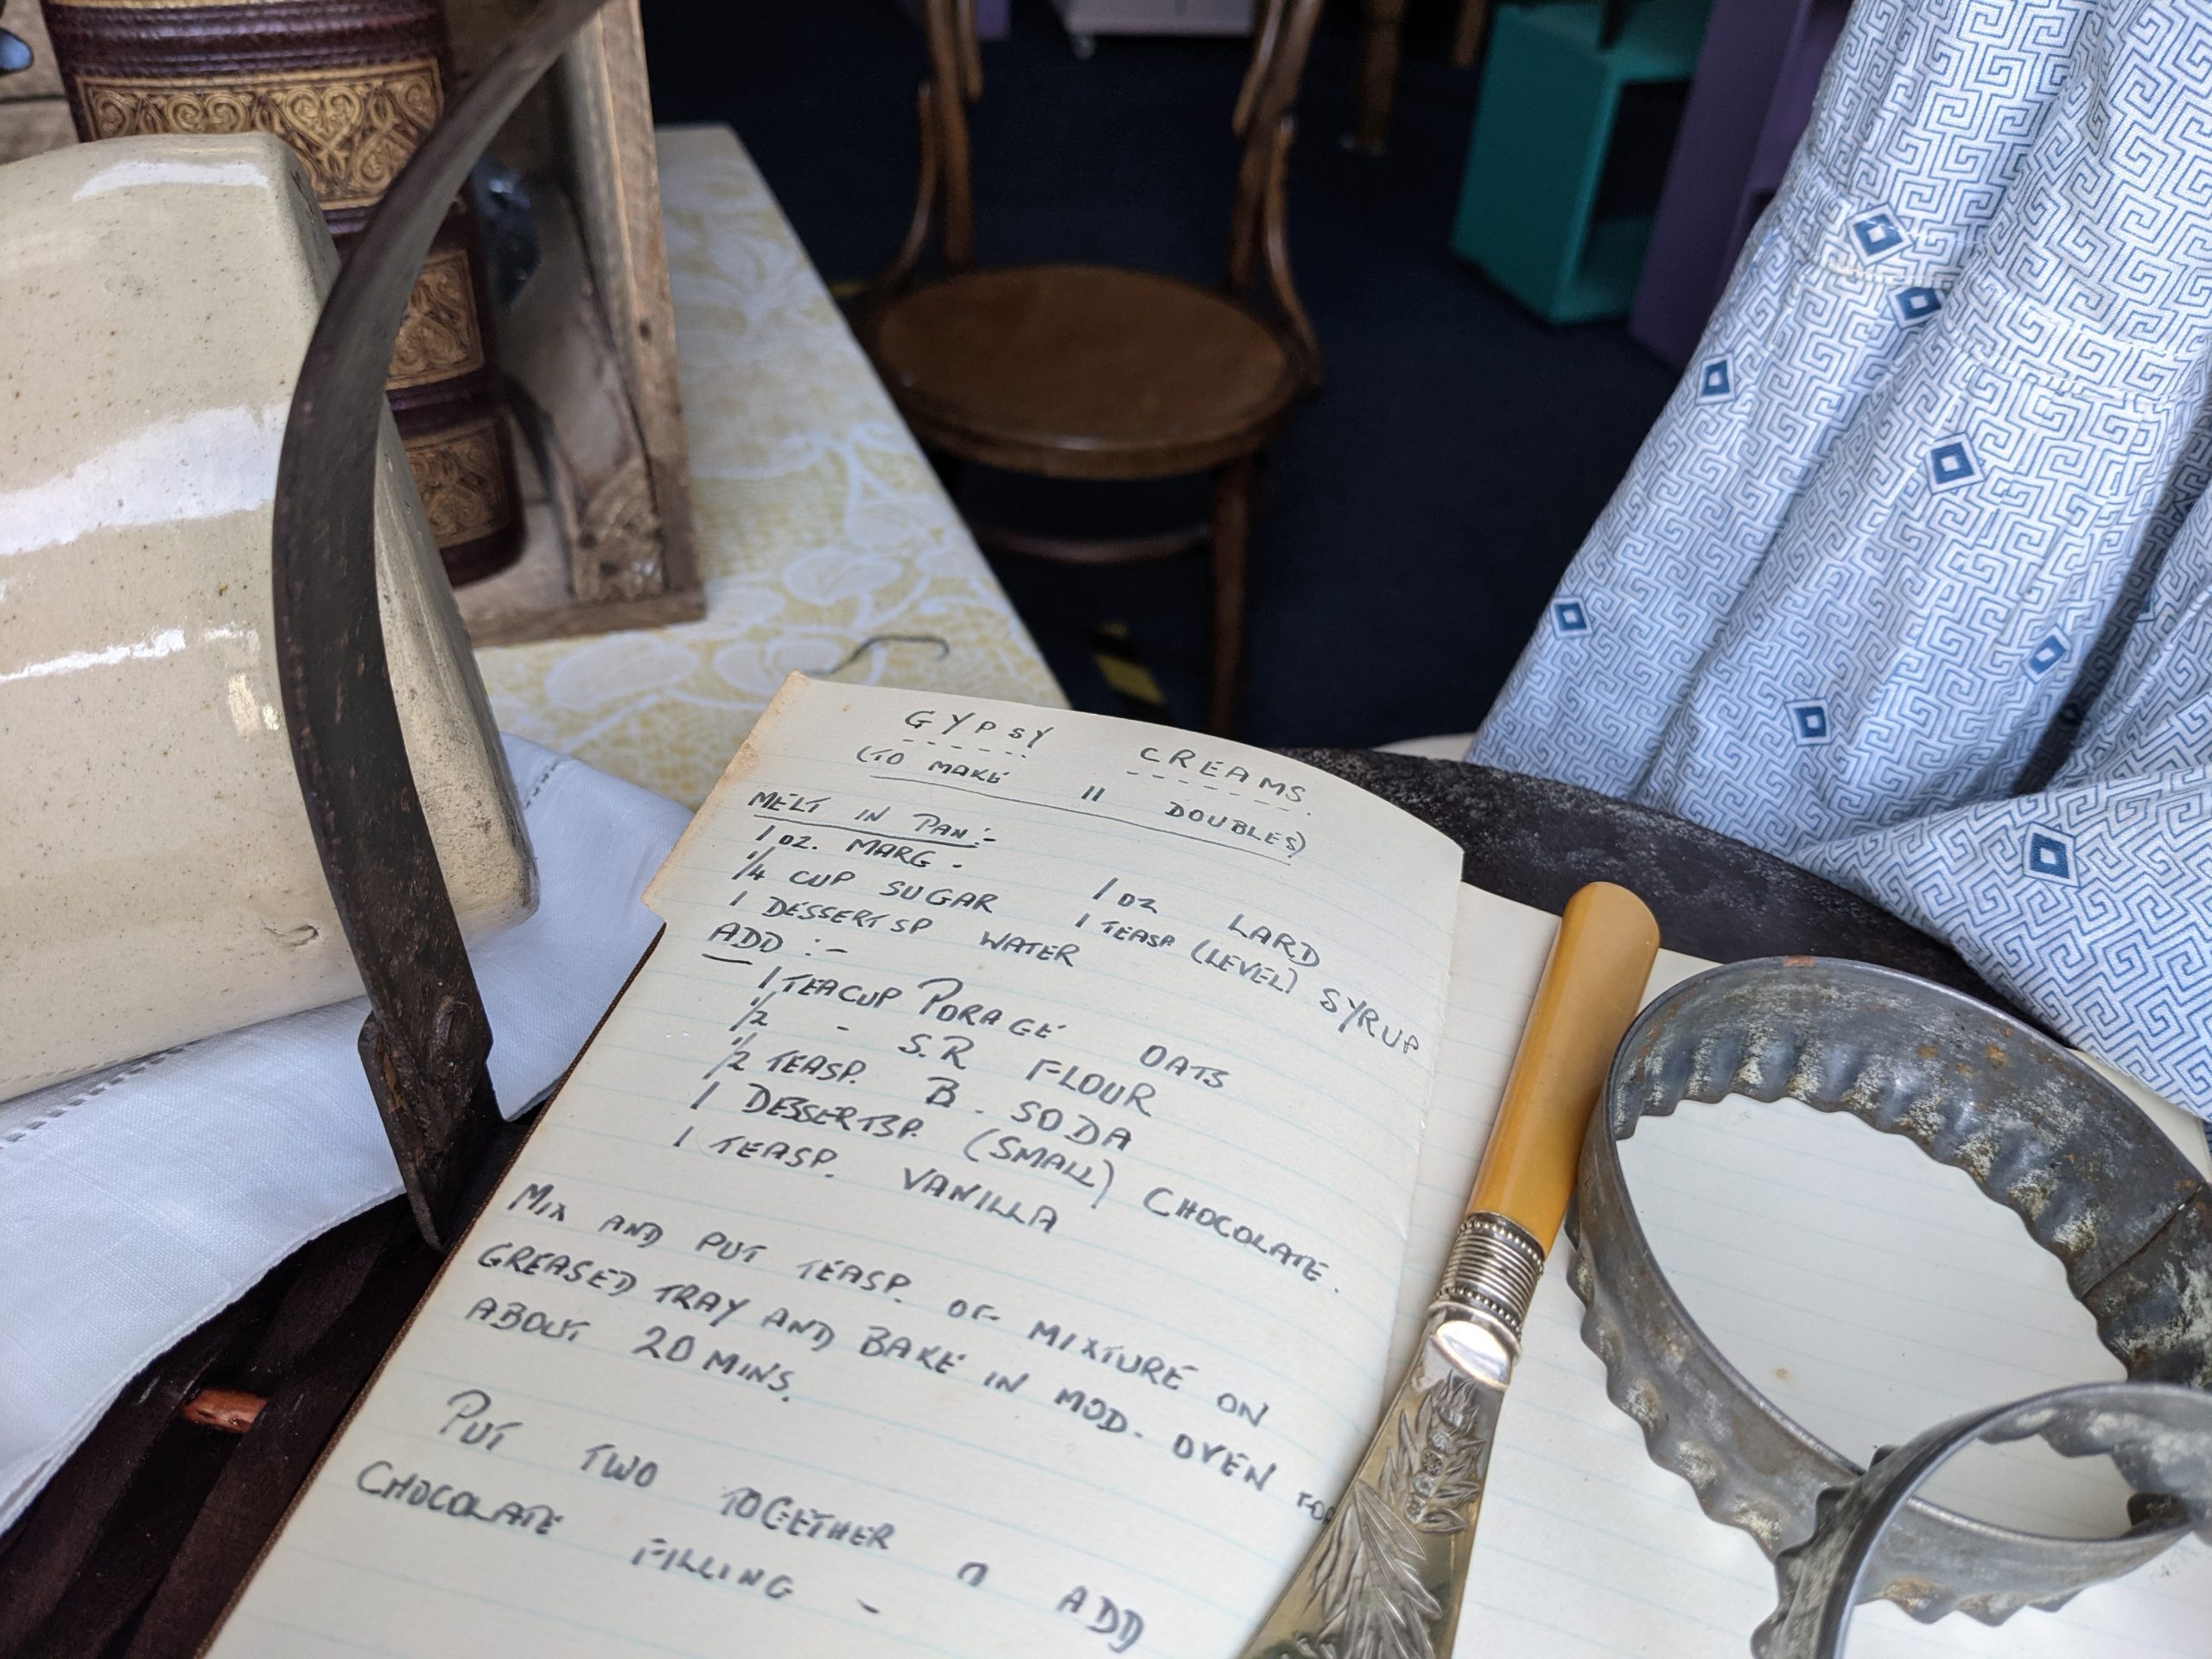 GYPSY CREAMS.
(TO MAKE 11 DOUBLES)
MELT IN PAN:-
1 OZ. MARG. 1 OZ LARD
1/4 CUP SUGAR 1 TEASP. (LEVEL) SYRUP
1 DESSERTSP WATER
ADD :-
1 TEACUP PORAGE OATS
1/2 - S.R FLOUR
1/2 TEASP. B. SODA
1 DESSERTSP. (SMALL) CHOCOLATE.
1 TEASP. VANILLA
MIX AND PUT TEASP. OF MIXTURE ON
GREASED TRAY AND BAKE IN MOD. OVEN FOR
ABOUT 20 MINS.
PUT TWO TOGETHER ADD
CHOCOLATE FILLING -